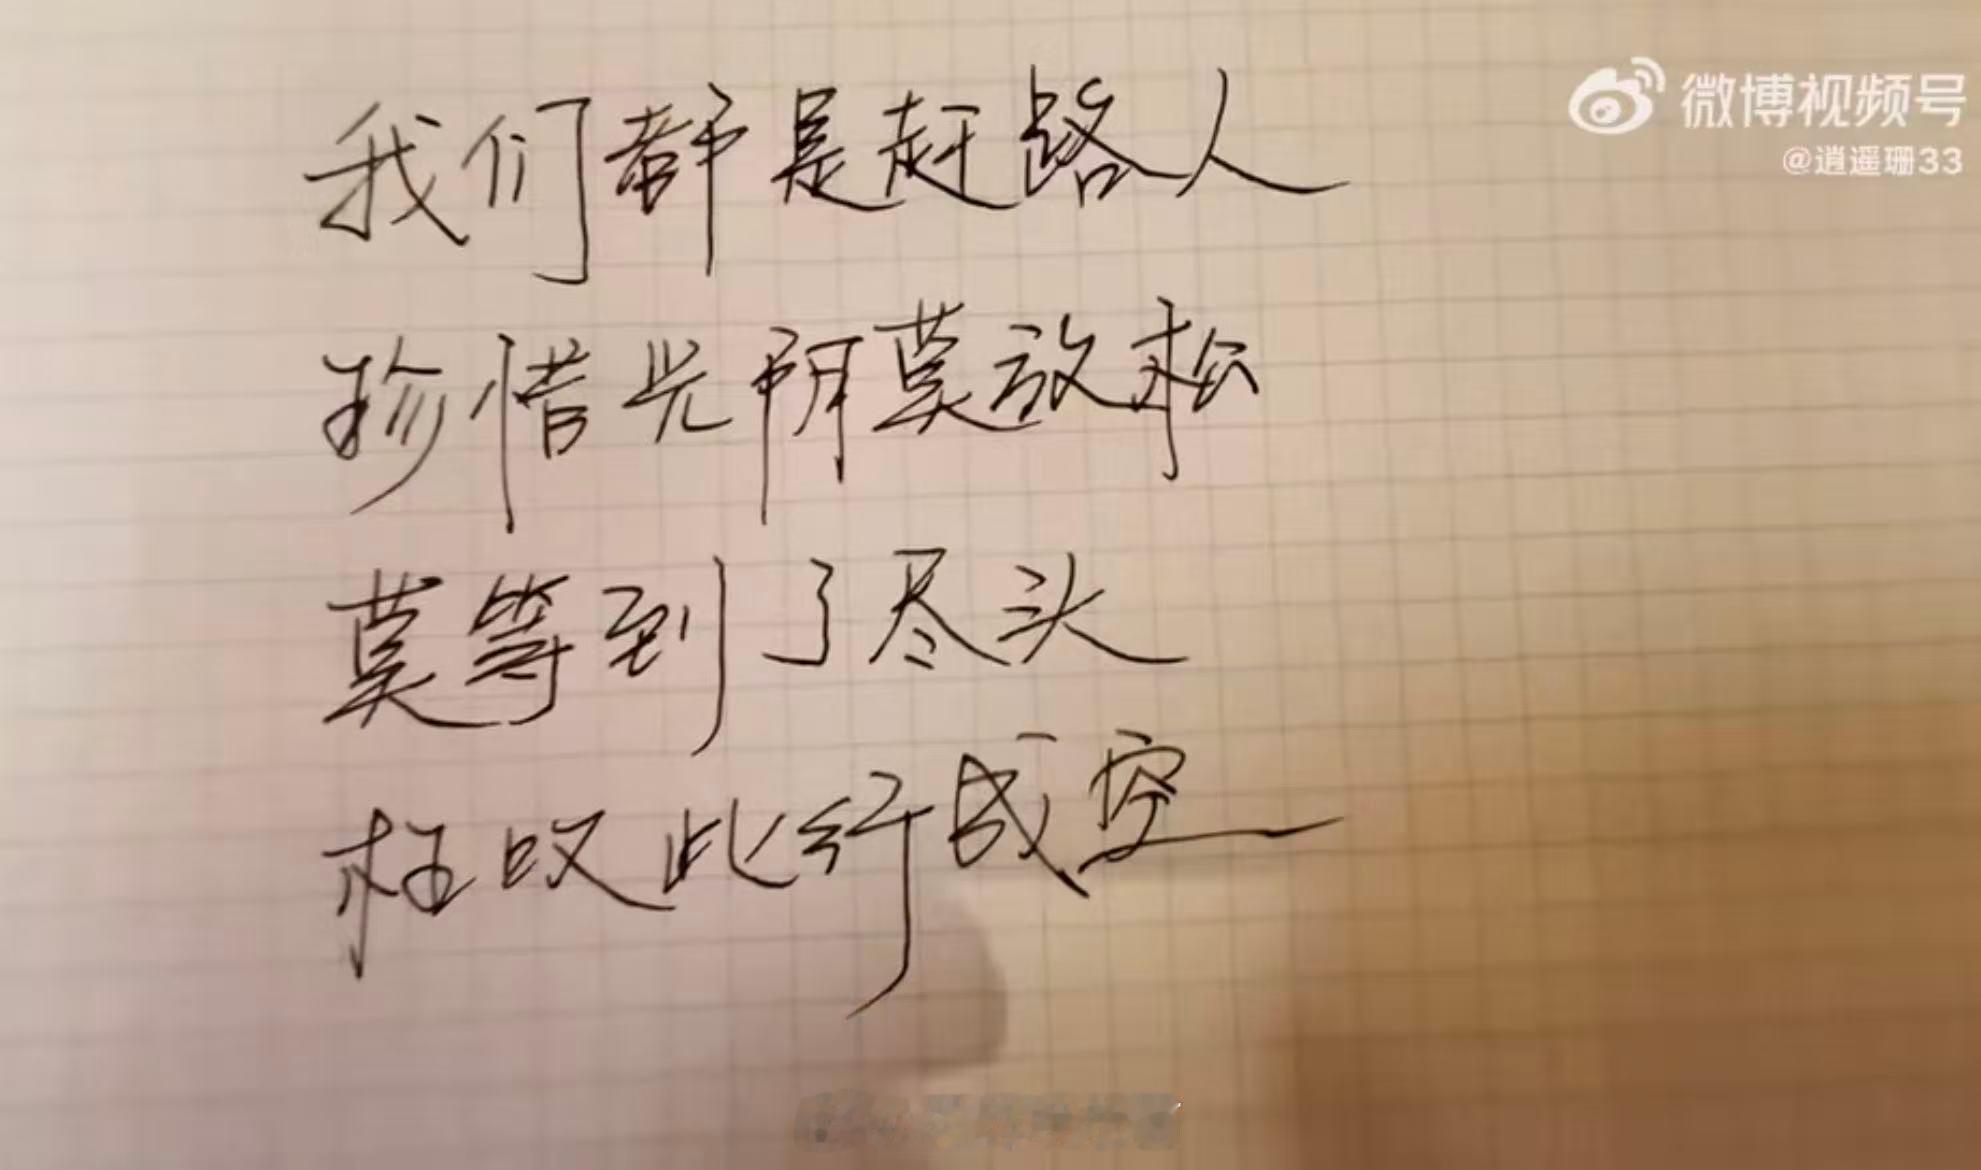 微博视频号
@逍遥珊33
我们都是赶路人
珍惜光阴莫放松
莫等到了尽头
枉叹此行成空